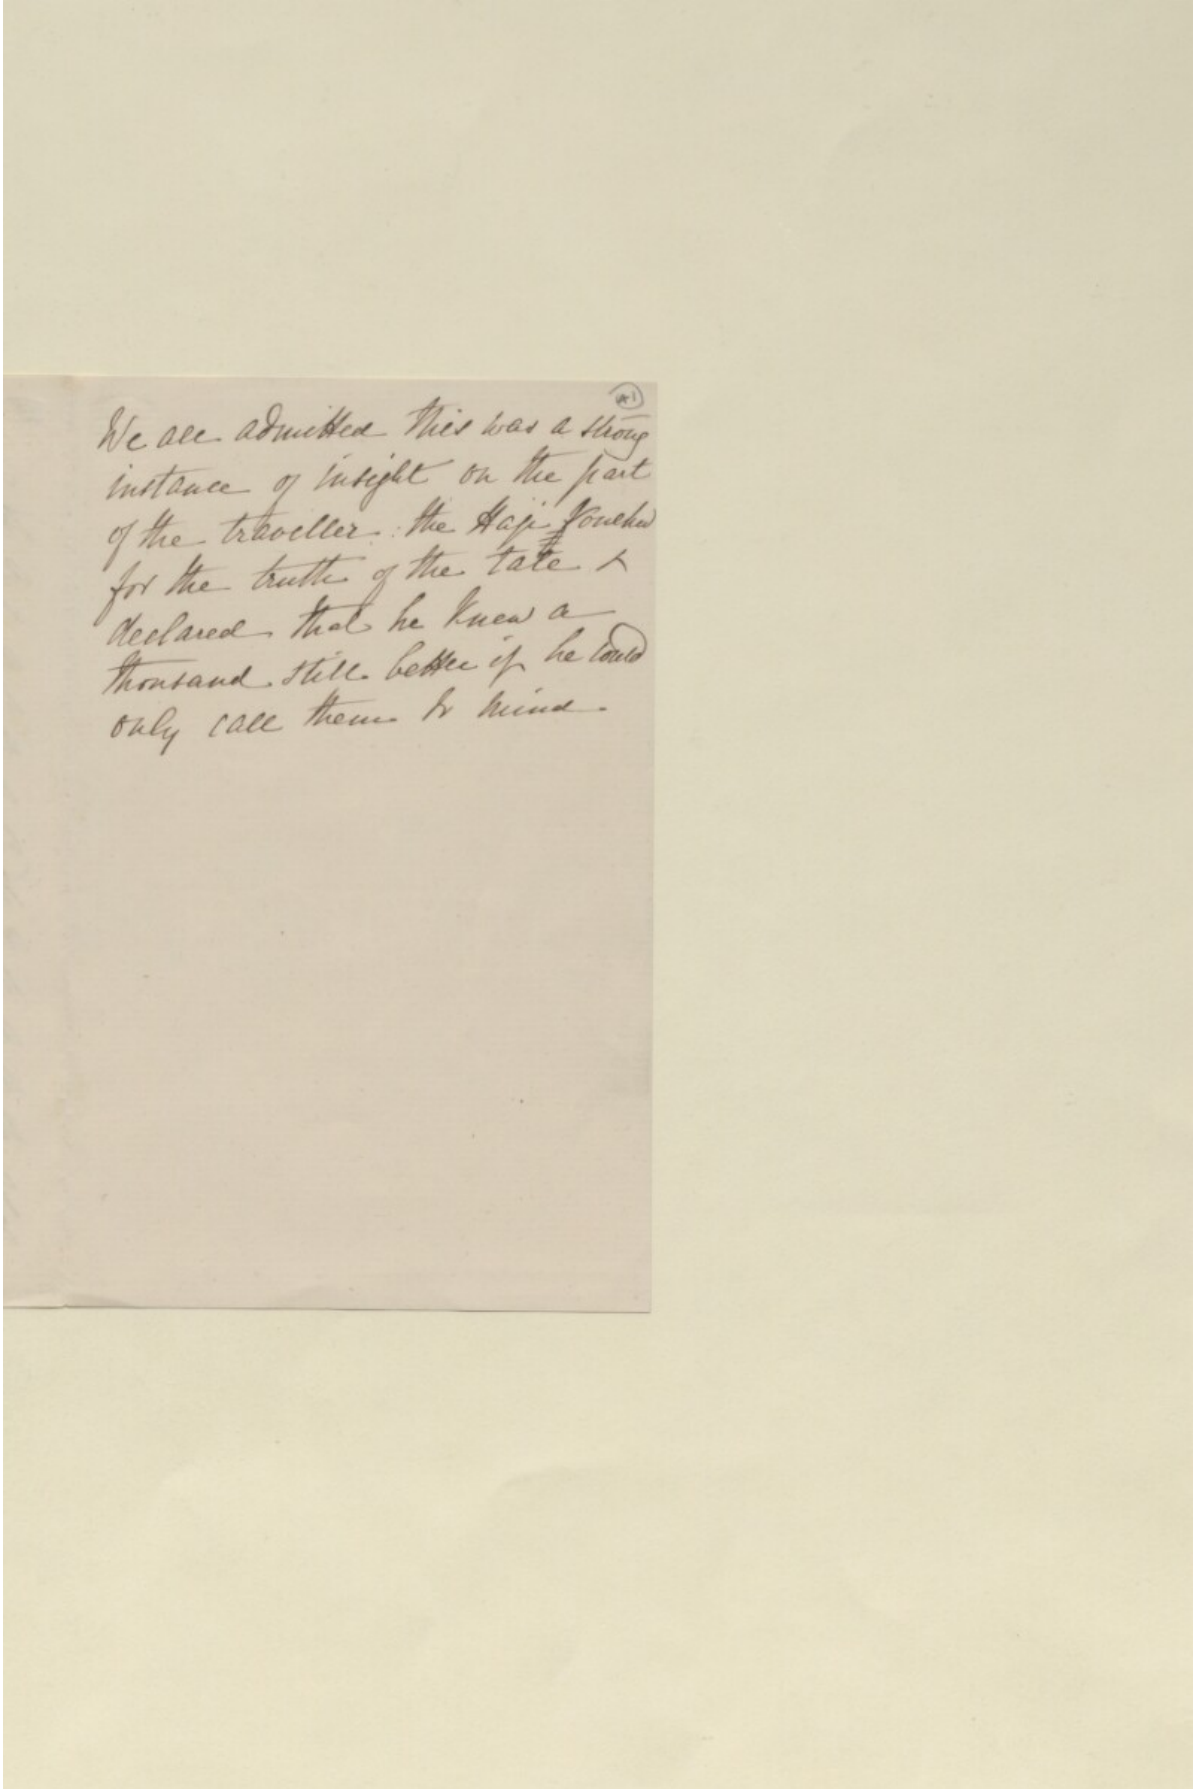 41
We all admitted this was a strong
instance of insight on the part
of the traveller. the Haji vouched
for the truth of the tale &
declared that he knew a
thousand still better if he could
only call them to mind.